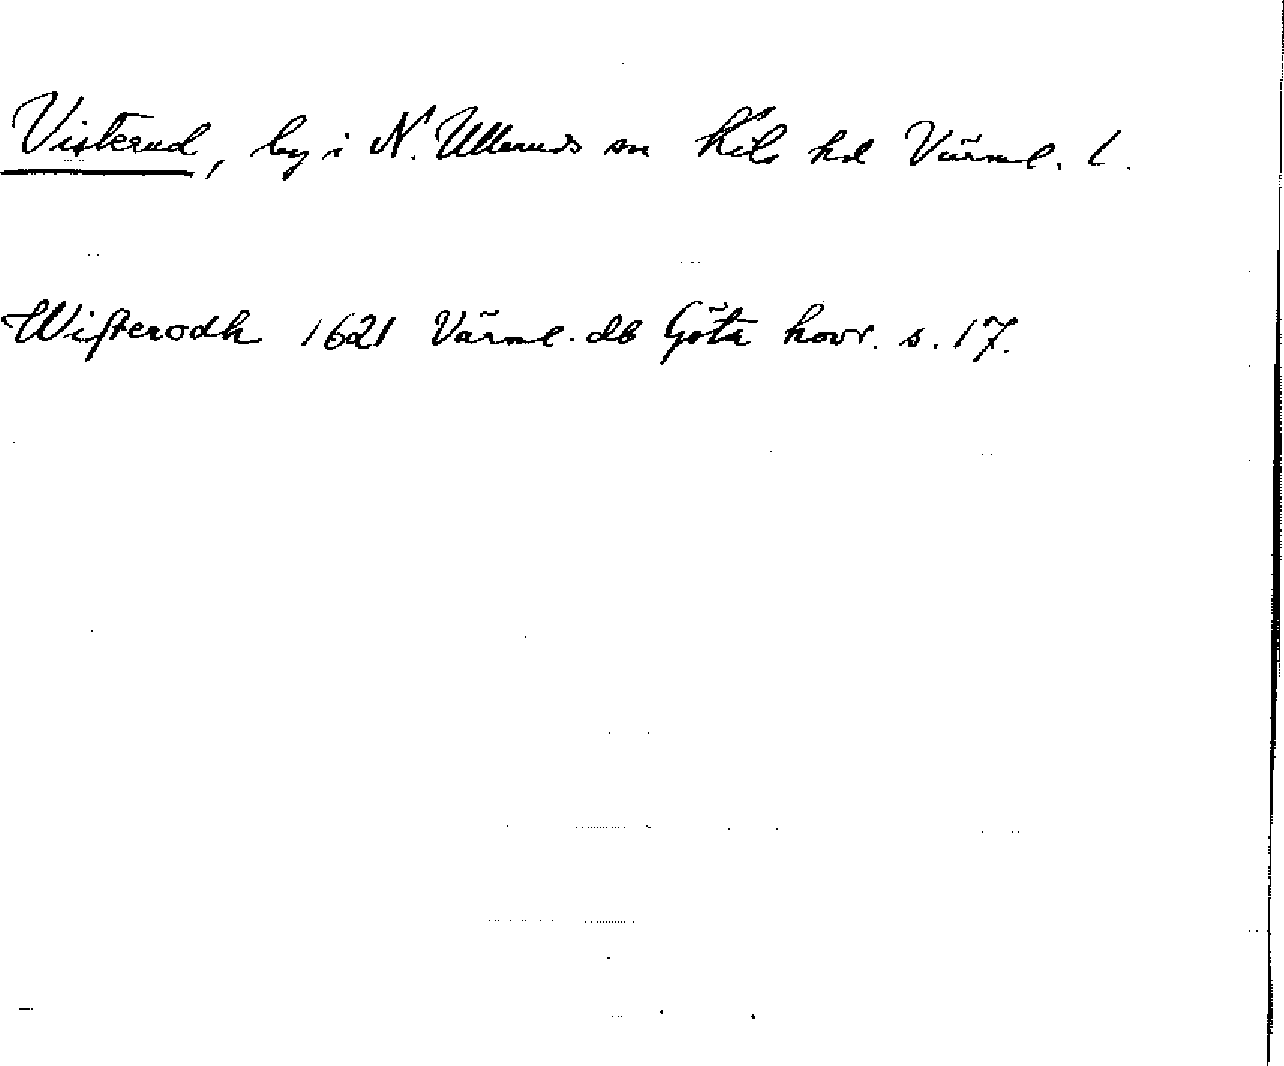 Visterud, by i N. Ulleruds sn Kils hd Värml. l.
Wisterodh 1621 Värml. db Göta hovr. s. 17.